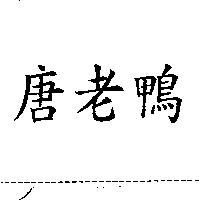 唐老鴨